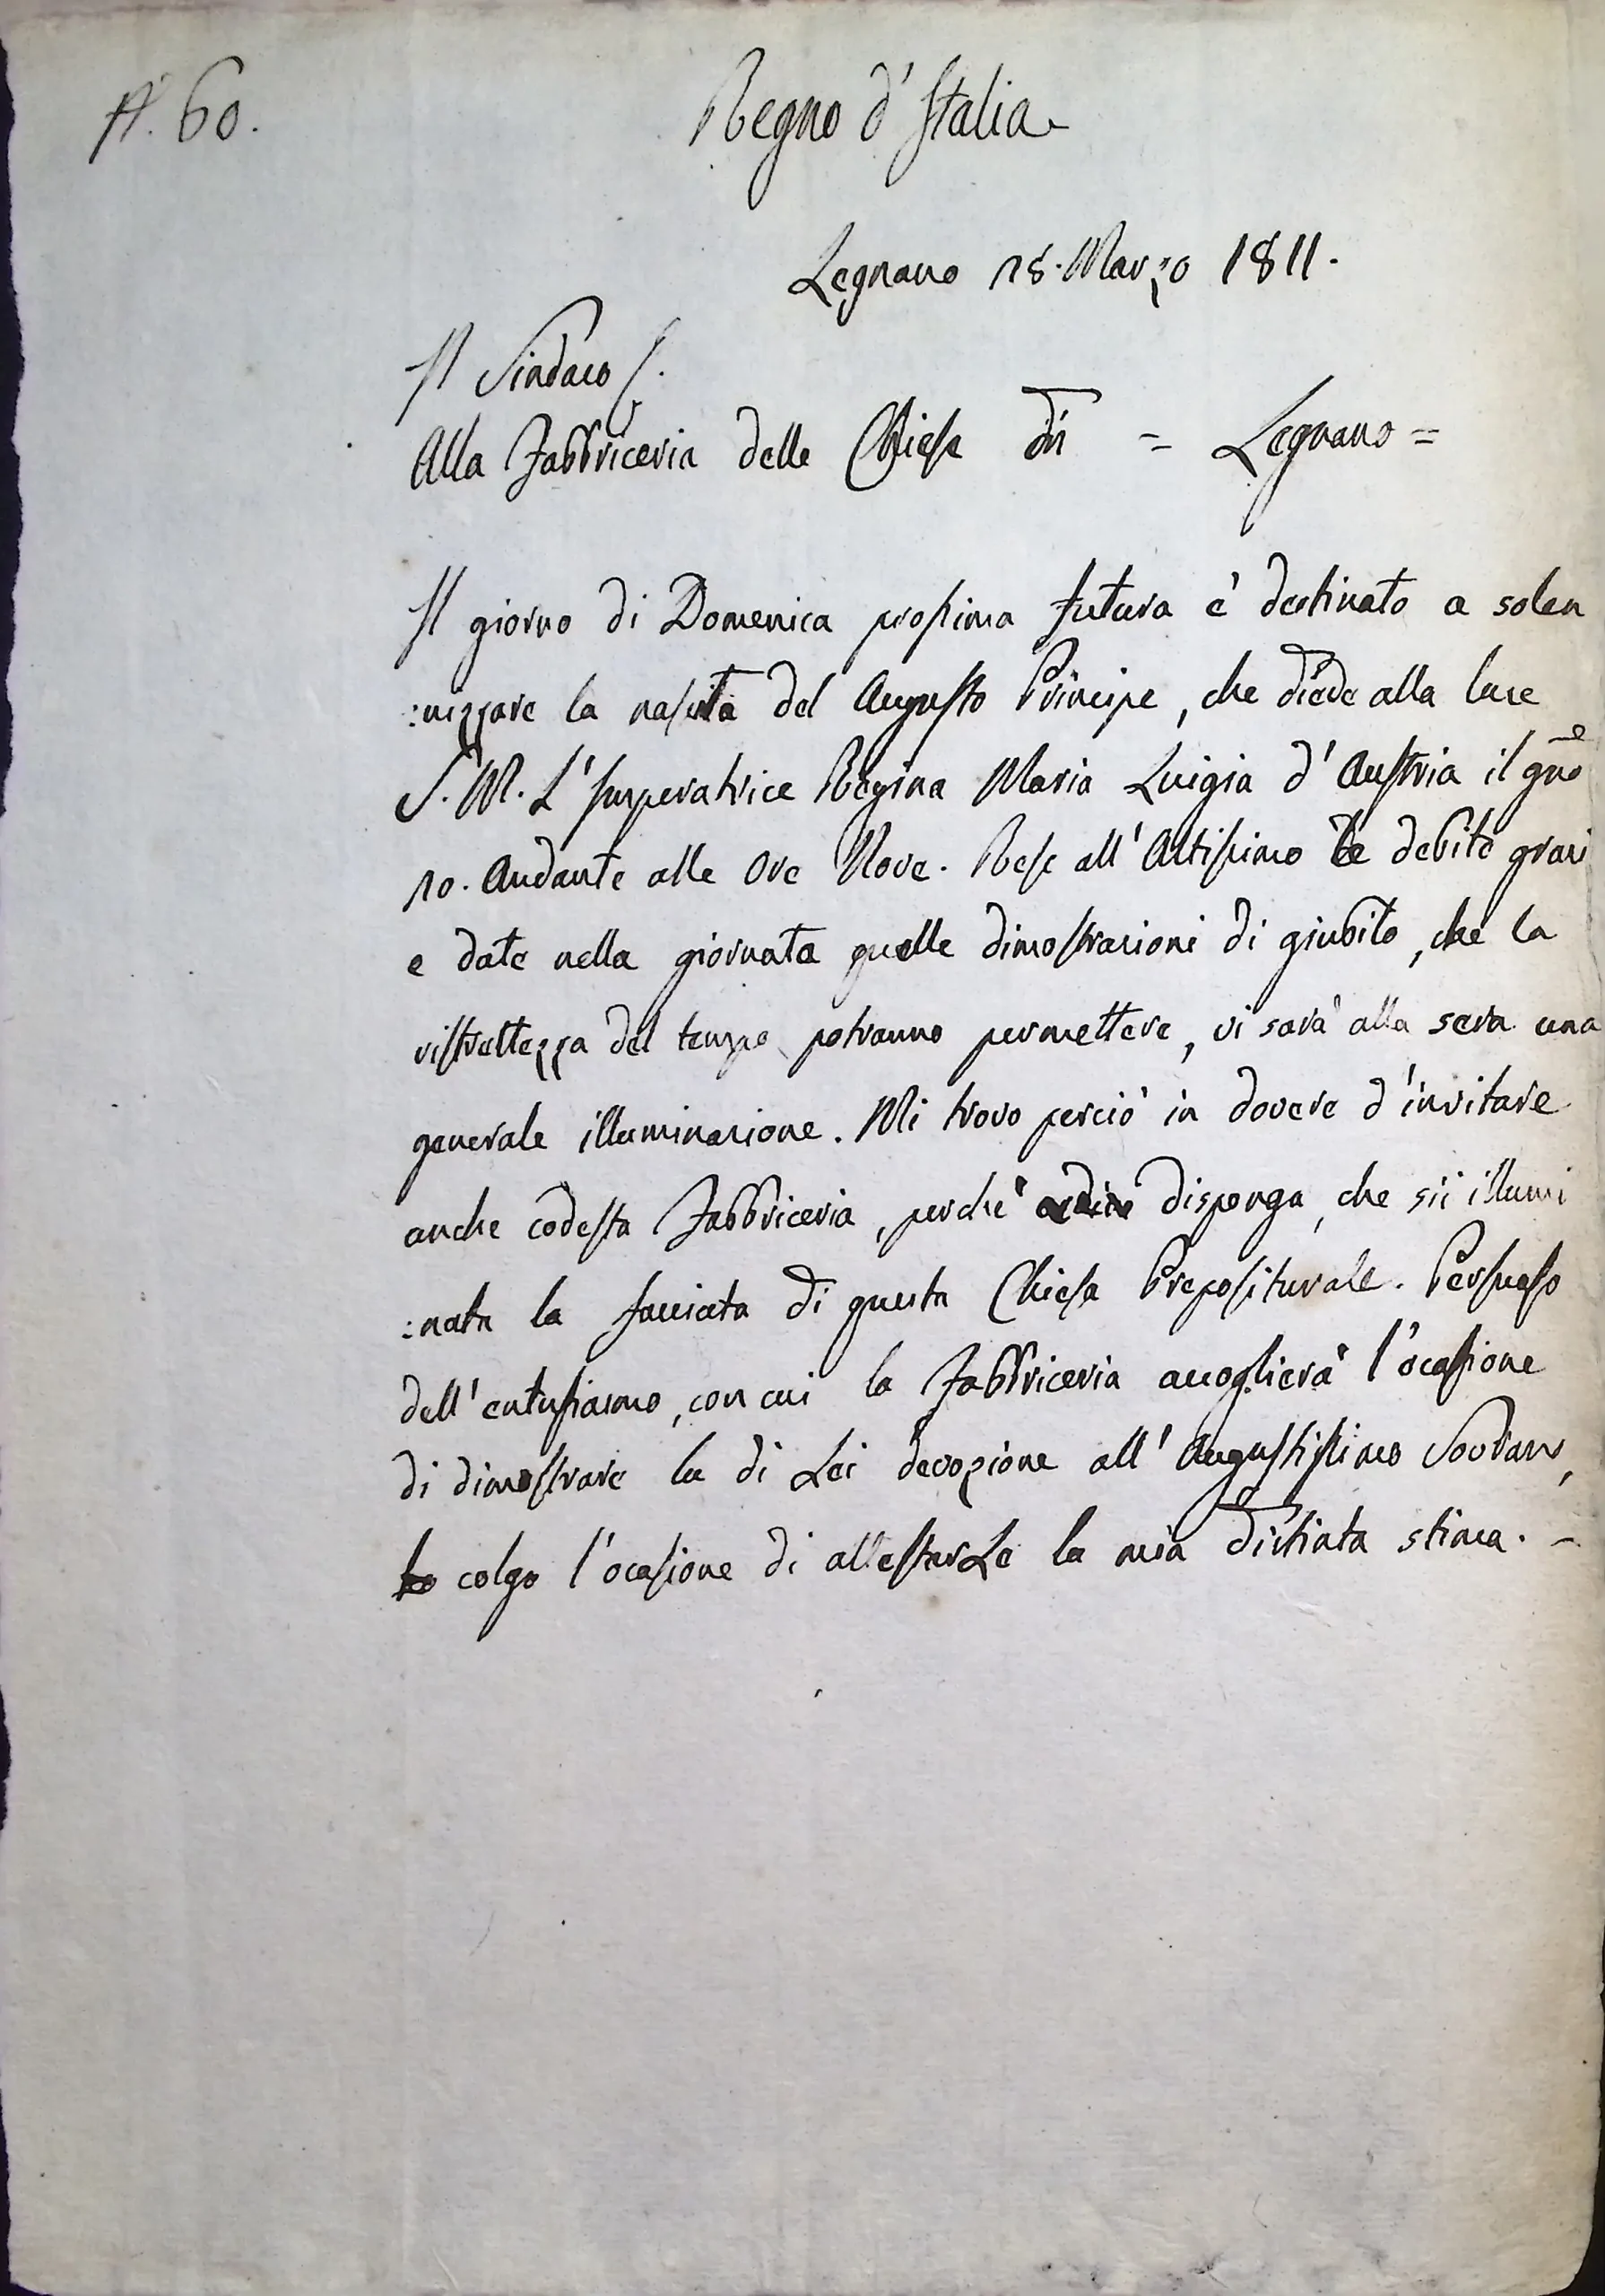 N. 60.
Regno d'Italia
Legnano 28. Marzo 1811.
Il Sindaco
Alla Fabbriceria delle Chiese di = Legnano =
Il giorno di Domenica prossima futura è destinato a solen
:nizzare la nascita del Augusto Principe, che diede alla luce
S. M. L'Imperatrice Regina Maria Luigia d'Austria il gno
20. Andante alle Ore Nove. Rese all'Altissimo le debite grazi
e date nella giornata quelle dimostrazioni di giubilo, che la
ristrettezza del tempo potranno permettere, vi sarà alla sera una
generale illuminazione. Mi trovo perciò in dovere d'invitare
anche codesta Fabbriceria, perchè disponga, che sii illumi
:nata la facciata di questa Chiesa Prepositurale. Persuaso
dell'entusiasmo, con cui la Fabbriceria accoglierà l'ocasione
di dimostrare la di Lei devozione all'Augustissimo Sovrano,
colgo l'ocasione di attestarLe la mia distinta stima. -